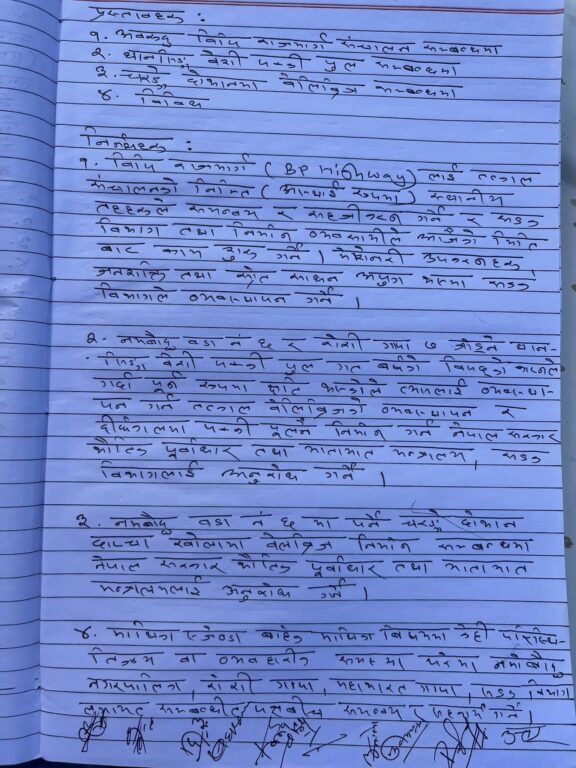 प्रस्तावहरू :
१. अवरुद्ध विपि राजमार्ग संचालन सम्बन्धमा
२. बेंसी पक्की पुल सम्बन्धमा
३. दोभानमा वेलिब्रिज सम्बन्धमा
४. विविध
निर्णयहरू :
१. विपि राजमार्ग (BP Highway) लाई तत्काल
संचालनको निमित्त (अस्थाई रूपमा) स्थानीय
तहहरूले समन्वय र सहजीकरण गर्ने र सडक
विभाग तथा निर्माण व्यवसायीले आजैको मिति
बाट काम सुरु गर्ने । मेशिनरी उपकरणहरू,
जनशक्ति तथा स्रोत साधन अपुग भएमा सडक
विभागले व्यवस्थापन गर्ने ।
२. नमोबुद्ध वडा नं ६ र रोशी गापा ७ जोड्ने
बेंसी पक्की पुल गत वर्षको विपदको कारणले
गर्दा पूर्ण रूपमा क्षति भएकोले त्यसलाई व्यवस्था-
पन गर्न तत्काल वेलिब्रिजको व्यवस्थापन र
दीर्घकालमा पक्की पूलनै निर्माण गर्न नेपाल सरकार
भौतिक पूर्वाधार तथा यातायात मन्त्रालय, सडक
विभागलाई अनुरोध गर्ने ।
३. नमोबुद्ध वडा नं ६ मा पर्ने दोभान
खोलामा वेलिब्रिज निर्माण सम्बन्धमा
नेपाल सरकार भौतिक पूर्वाधार तथा यातायात
मन्त्रालयलाई अनुरोध गर्ने ।
४. माथिका एजेण्डा बाहेक माथिका विषयमा केही परिस्थि-
तिजन्य वा व्यवहारीक समस्या परेमा नमोबुद्ध
नगरपालिका, रोशी गापा, महाभारत गापा, सडक विभाग
लगायत सम्बन्धीत समन्वय र सहकार्य गर्ने ।